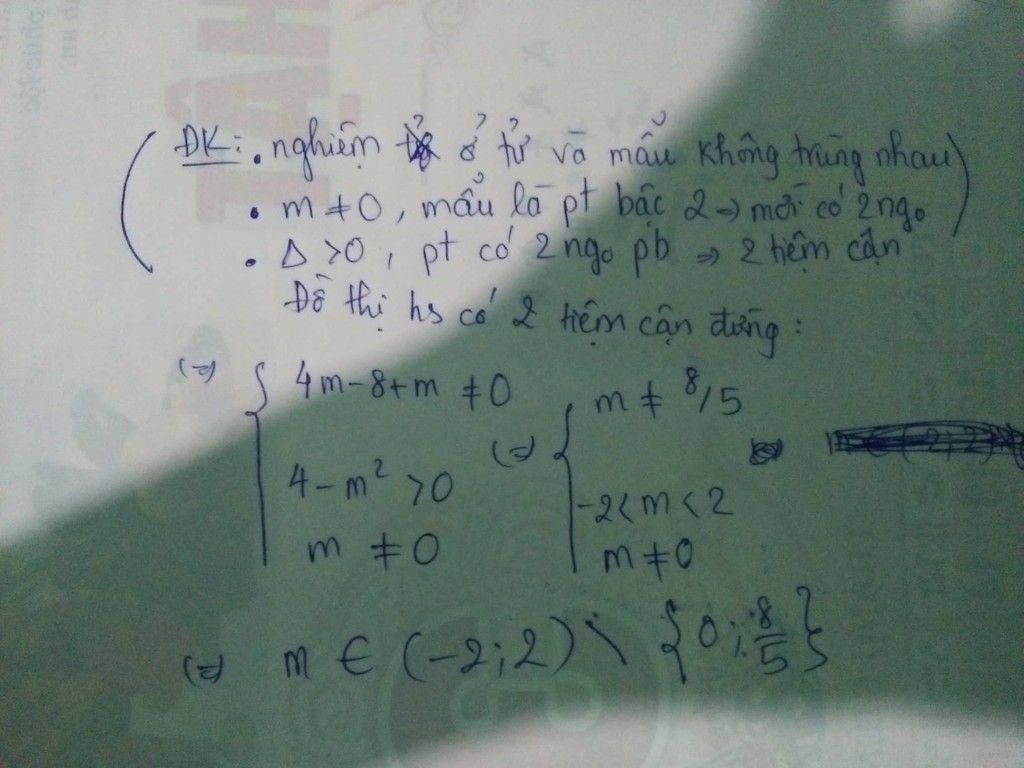 ĐK: . nghiệm ở tử và mẫu không trùng nhau
. m ≠ 0, mẫu là pt bậc 2 => mới có 2 ngo
. Δ > 0, pt có 2 ngo pb => 2 tiệm cận
Đồ thị hs có 2 tiệm cận đứng:
(=) { 4m - 8 + m ≠ 0 (=) { m ≠ 8/5
4 - m² > 0 -2 < m < 2
m ≠ 0 m ≠ 0
(=) m ∈ (-2; 2) \ {0; 8/5}